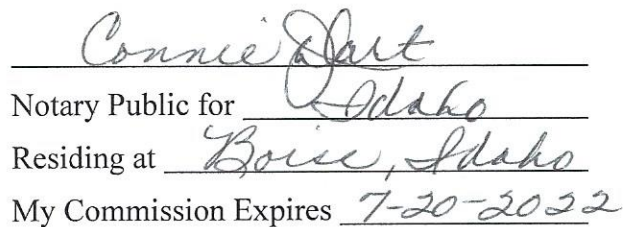 Connie Hart
Notary Public for Idaho
Residing at Boise, Idaho
My Commission Expires 7-20-2022